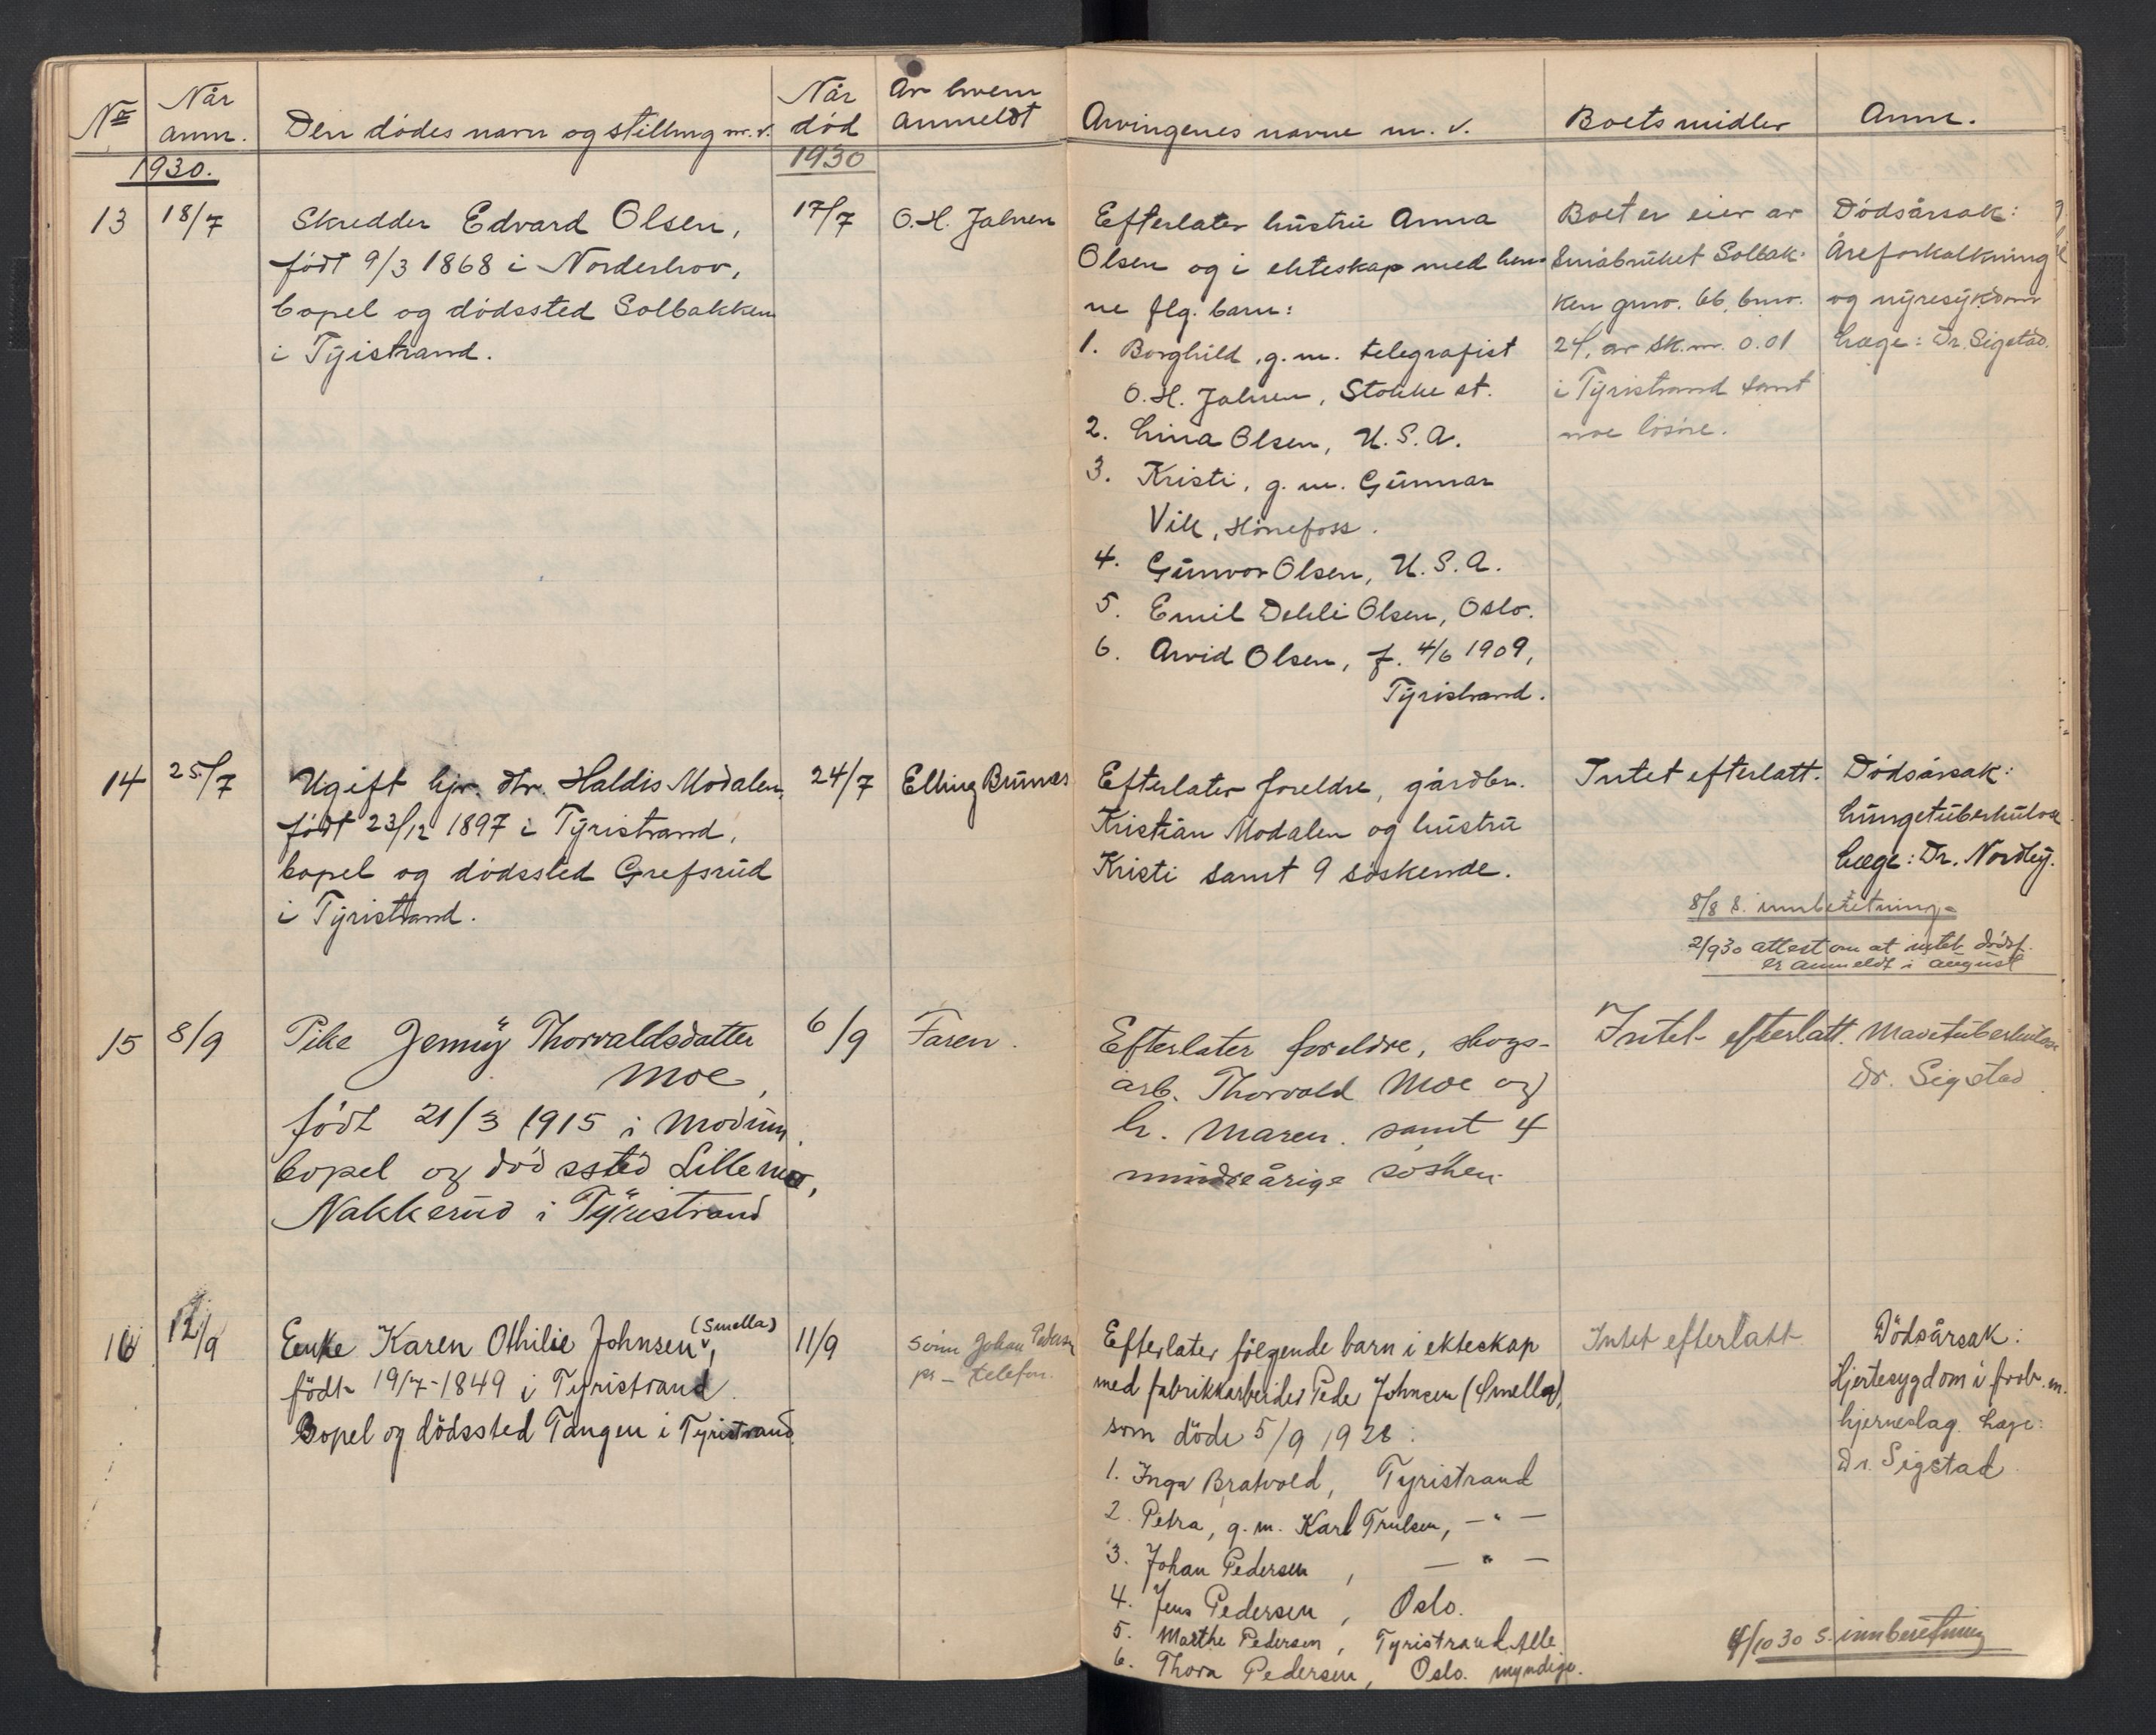 Nr.
Når anm.
Den dødes navn og stilling m. v.
Når død
Av hvem anmeldt
Arvingenes navne m. v.
Boets midler
Anm.
1930.
1930
13
18/7
Skredder Edvard Olsen,
født 9/3 1868 i Norderhov,
bopel og dødssted Solbakken
i Tyistrand.
17/7
O. H. Jahren
Efterlater hustru Anna
Olsen og i ekteskap med hen-
ne flg. barn:
1. Borghild, g. m. telegrafist
O. H. Jahren, Stokke st.
2. Lina Olsen, U. S. A.
3. Kristi, g. m. Gunnar
Vik, Hönefoss.
4. Gunvor Olsen, U. S. A.
5. Emil Dehli Olsen, Oslo.
6. Arvid Olsen, f. 4/6 1909,
Tyristrand.
Boet er eier av
Småbruket Solbak-
ken gnr. 66, bnr.
24, av sk. m. 0.01
i Tyristrand samt
noe løsøre.
Dødsårsak:
Åreforkalkning
og nyresykdom
Læge: Dr. Sigstad.
14
25/7
Ugift hjv. dtr. Haldis Modalen,
født 23/12 1897 i Tyristrand,
bopel og dødssted Grefsrud
i Tyristrand.
24/7
Elling Brunes
Efterlater foreldre, gårdbr.
Kristian Modalen og hustru
Kristi samt 9 søskende.
Intet efterlatt.
Dødsårsak:
Lungetuberkulose
Læge: Dr. Nordby.
8/8 s. innberetning
2/9 30 attest om at intet dødsf.
er anmeldt i august
15
8/9
Pike Jenny Thorvaldsdatter
Moe,
født 21/3 1915 i Modum.
bopel og dødssted Lillemo,
Nakkerud i Tyristrand
6/9
Faren.
Efterlater foreldre, skogs-
arb. Thorvald Moe og
h. Maren. samt 4
mindreårige søsken.
Intet efterlatt.
Mavetuberkulose
Dr. Sigstad
16
12/9
Enke Karen Othilie Johnsen (Smella),
født 19/7-1849 i Tyristrand.
Bopel og dødssted Tangen i Tyristrand.
11/9
Sønn Johan Pedersen
pr – telefon.
Efterlater følgende barn i ekteskap
med fabrikkarbeider Peder Johnsen (Smella),
som døde 5/9 1928:
1. Inga Bratvold, Tyristrand
2. Petra, g. m. Karl Trulsen, — " —
3. Johan Pedersen, — " —
4. Jens Pedersen, Oslo.
5. Marthe Pedersen, Tyristrand. Alle
6. Thora Pedersen, Oslo. myndige.
Intet efterlatt
Dødsårsak:
Hjertesygdom i forb. m.
hjerneslag. Læge:
Dr. Sigstad
4/10 30 s. innberetning